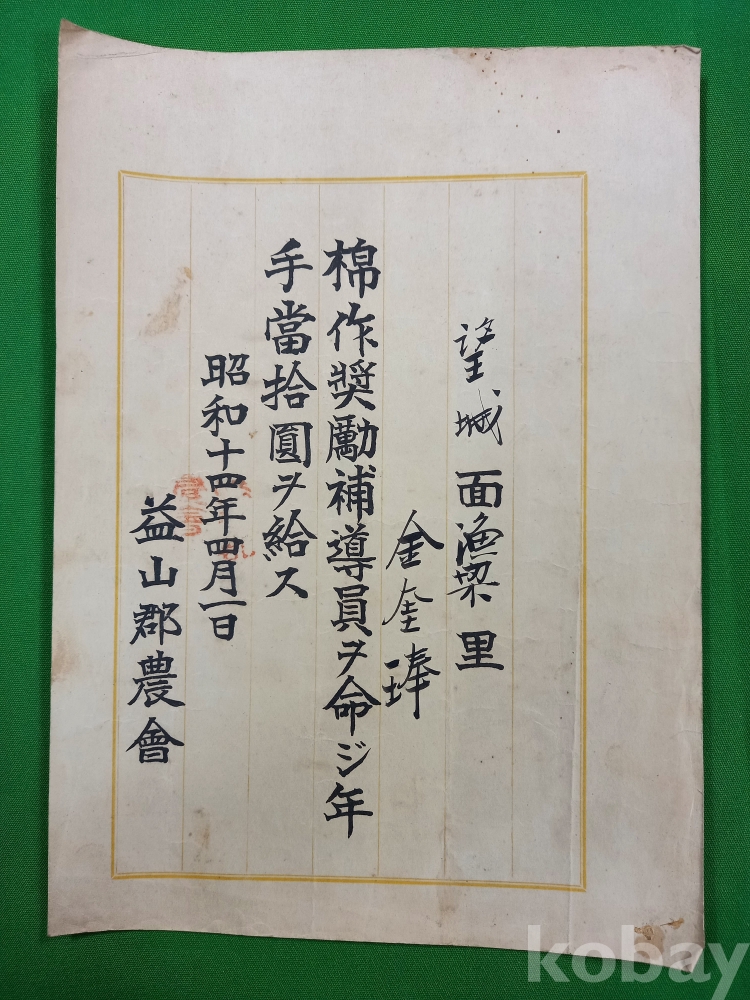 望城面漁梁里
金奎琫
棉作奨勵補導員ヲ命ジ年
手當拾圓ヲ給ス
昭和十四年四月一日
益山郡農會
kobay